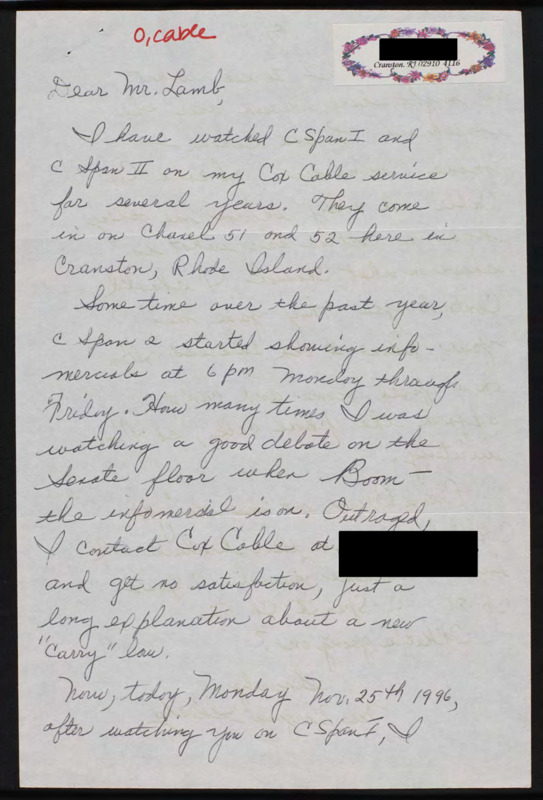 O, cable
Cranston, RI 02910 4116
Dear Mr. Lamb,
I have watched C Span I and
C Span II on my Cox Cable service
for several years. They come
in on Chanel 51 and 52 here in
Cranston, Rhode Island.
Some time over the past year,
C Span 2 started showing info-
mercials at 6 pm Monday through
Friday. How many times I was
watching a good debate on the
Senate floor when Boom —
the infomercial is on. Outraged,
I contact Cox Cable at
and get no satisfaction, just a
long explanation about a new
"Carry" law.
Now, today, Monday Nov. 25th 1996,
after watching you on C Span I, I